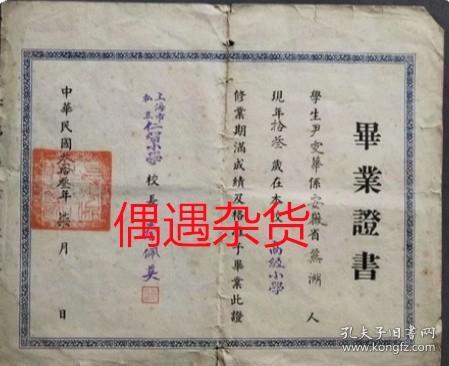 畢業證書
學生尹安華係安徽省蕪湖人
現年拾叁歲在本校高級小學
修業期滿成績及格 予畢業此證
上海市私立仁智小學 校長 佩英
中華民國叁拾叁年柒月 日
偶遇杂货
孔夫子旧书网
www.kongfz.com